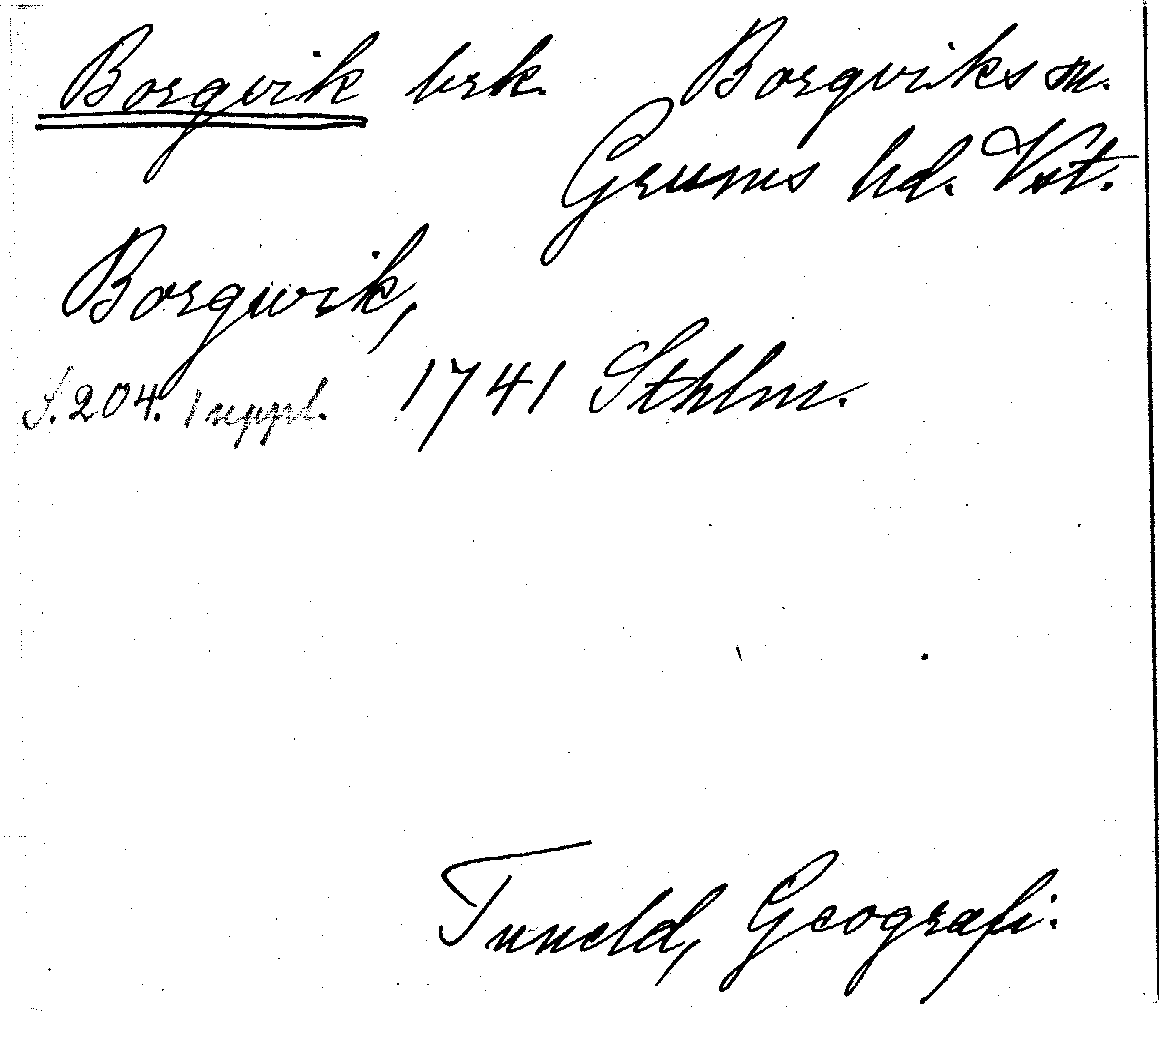 Borgvik brk. Borgviks sn.
Grums hd. Vst.
Borgwik,
S. 204. 1 uppl. 1741 Sthlm.
Tuneld, Geografi.